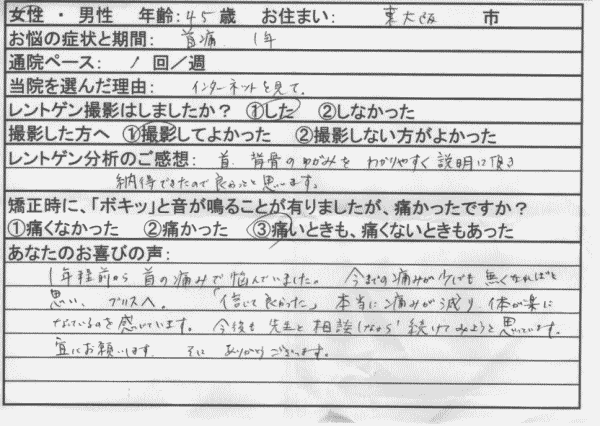 女性 ・ 男性 年齢:45歳 お住まい: 東大阪 市
お悩の症状と期間: 首痛 1年
通院ペース: 1 回/週
当院を選んだ理由: インターネットを見て.
レントゲン撮影はしましたか? ①した ②しなかった
撮影した方へ ①撮影してよかった ②撮影しない方がよかった
レントゲン分析のご感想: 首. 背骨のゆがみを わかりやすく説明に頂き
納得できたので良かったと思います。
矯正時に、「ボキッ」と音が鳴ることが有りましたが、痛かったですか?
①痛くなかった ②痛かった ③痛いときも、痛くないときもあった
あなたのお喜びの声:
1年程前から 首の痛みで悩んでいました。 今までの痛みが少しでも無くなればと
思い、 プリスへ. 「信じて良かった」 本当に痛みが減り 体が楽に
なっているのを感じています。 今後も 先生と相談しながら 続けてみようと思っています。
宜しくお願いします. ありがとうございます。